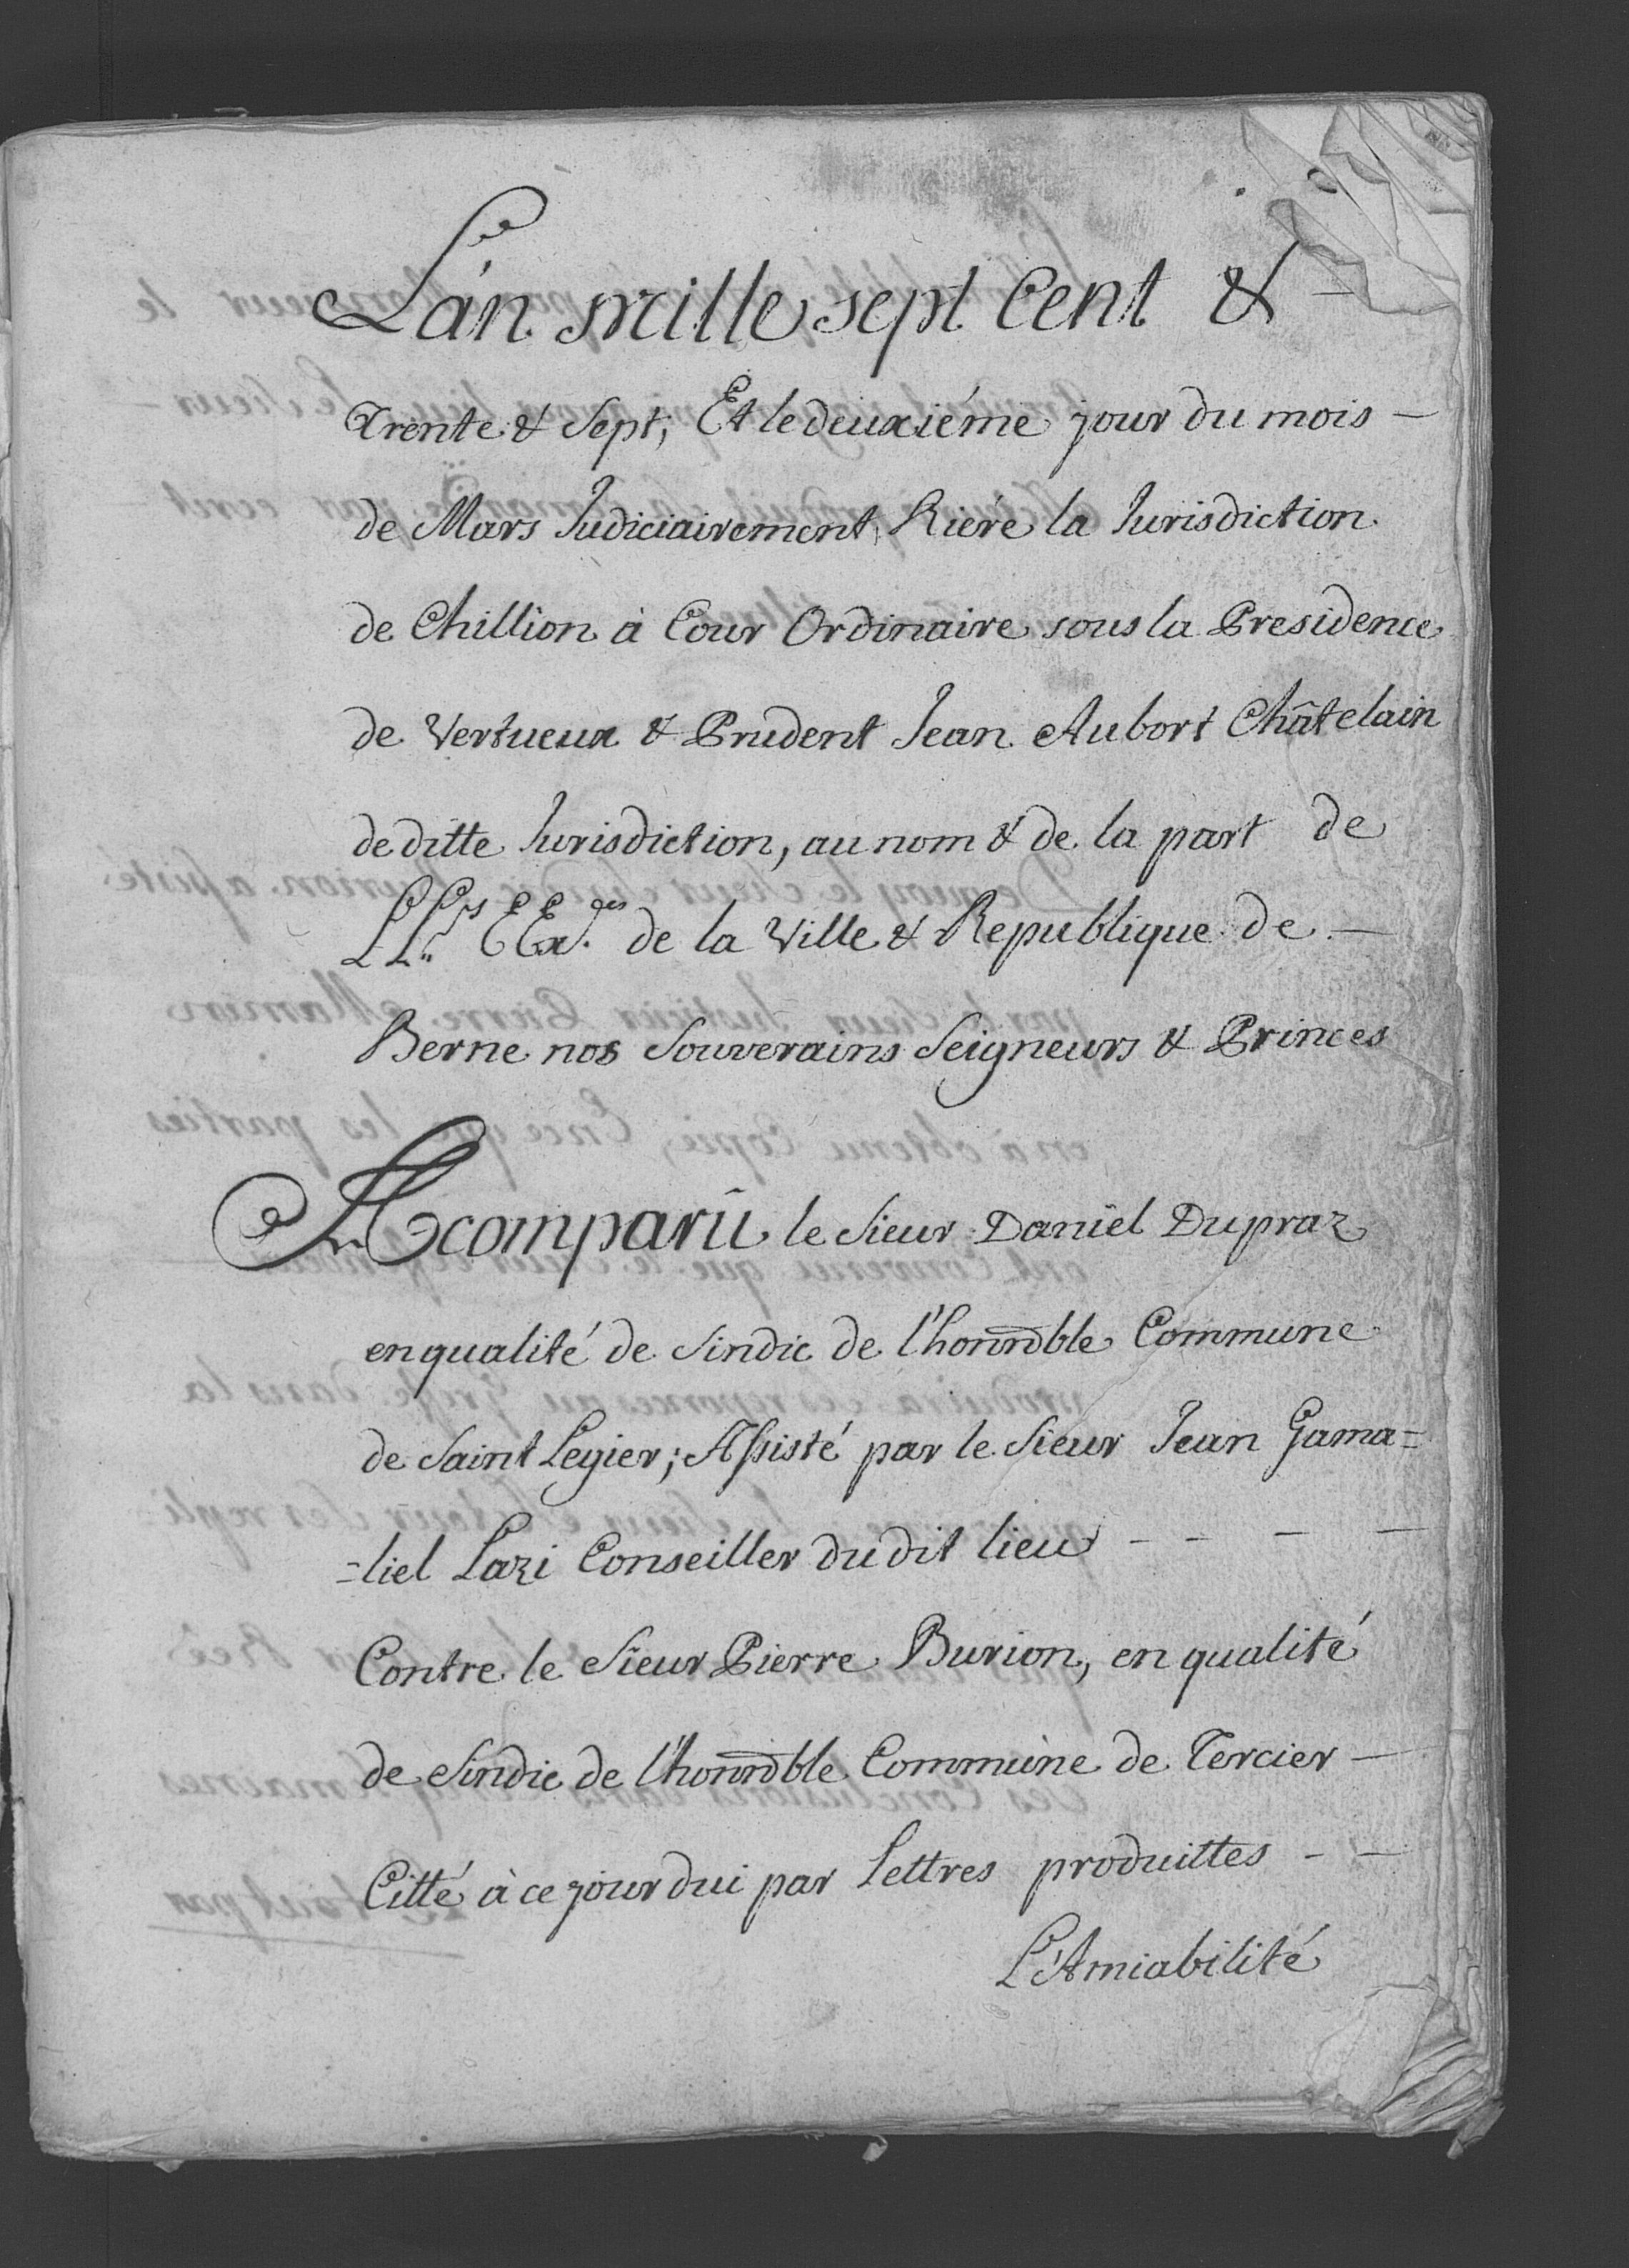 L'an mille sept Cent &
Trente & Sept; Et le deuxiéme jour du mois —
de Mars Judiciairement Riére la Jurisdiction
de Chillion à Cour Ordinaire sous la Presidence
de Vertueux & Prudent Jean Aubort Châtelain
de ditte Jurisdiction, au nom & de la part de
LL.rs EEx.ces de la Ville & Republique de —
Berne nos Souverains Seigneurs & Princes
A comparû le Sieur Daniel Dupraz
en qualité de Sindic de l'honnoble Commune
de Saint Legier; Assisté par le Sieur Jean Gama=
=liel Lazi Conseiller dudit lieu - - - —
Contre le Sieur Pierre Burion, en qualité
de Sindic de l'honnoble Commune de Tercier —
Citté à ce jourdui par Lettres produittes - —
L'Amiabilité